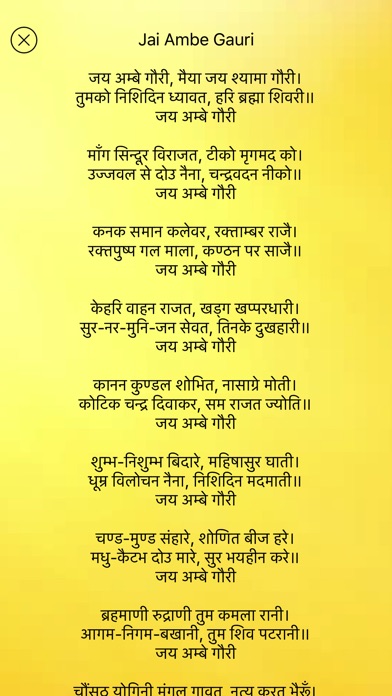 Jai Ambe Gauri
जय अम्बे गौरी, मैया जय श्यामा गौरी।
तुमको निशिदिन ध्यावत, हरि ब्रह्मा शिवरी॥
जय अम्बे गौरी
माँग सिन्दूर विराजत, टीको मृगमद को।
उज्जवल से दोउ नैना, चन्द्रवदन नीको॥
जय अम्बे गौरी
कनक समान कलेवर, रक्ताम्बर राजै।
रक्तपुष्प गल माला, कण्ठन पर साजै॥
जय अम्बे गौरी
केहरि वाहन राजत, खड्ग खप्परधारी।
सुर-नर-मुनि-जन सेवत, तिनके दुखहारी॥
जय अम्बे गौरी
कानन कुण्डल शोभित, नासाग्रे मोती।
कोटिक चन्द्र दिवाकर, सम राजत ज्योति॥
जय अम्बे गौरी
शुम्भ-निशुम्भ बिदारे, महिषासुर घाती।
धूम्र विलोचन नैना, निशिदिन मदमाती॥
जय अम्बे गौरी
चण्ड-मुण्ड संहारे, शोणित बीज हरे।
मधु-कैटभ दोउ मारे, सुर भयहीन करे॥
जय अम्बे गौरी
ब्रहमाणी रुद्राणी तुम कमला रानी।
आगम-निगम-बखानी, तुम शिव पटरानी॥
जय अम्बे गौरी
चौंसठ योगिनी मंगल गावत, नृत्य करत भैरूँ।